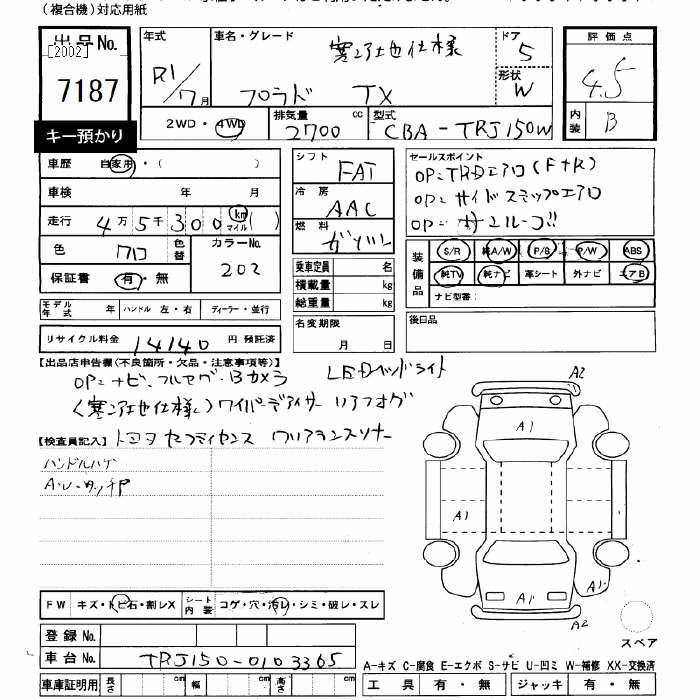 (複合機)対応用紙
出品No.
[2002]
7187
キー預かり
年式
R1/7月
車名・グレード
寒冷地仕様
プラド TX
ドア
5
形状
W
評価点
4.5
内装
B
2WD・4WD
排気量
2700
cc
型式
CBA-TRJ150W
車歴 自家用・( )
車検 年 月
走行 4万5千300 km マイル ( )
色 クロ 色替
カラーNo.
202
保証書 有・無
シフト
FAT
冷房
AAC
燃料
ガソリン
乗車定員 名
積載量 kg
総重量 kg
セールスポイント
OP=TRDエアロ(F+R)
OP=サイドステップエアロ
OP=サンルーフ!!
装備品
S/R 純A/W P/S P/W ABS
純TV 純ナビ 革シート 外ナビ エアB
ナビ型番:
モデル年式 年 ハンドル 左・右 ディーラー・並行
名変期限
月 日
後日品
リサイクル料金 14140 円 預託済
【出品店申告欄(不良箇所・欠品・注意事項等)】
OP=ナビ、フルセグ・Bカメラ LEDヘッドライト
(寒冷地仕様)ワイパーデアイサー リアフォグ
【検査員記入】
トヨタセーフティセンス クリアランスソナー
ハンドルハゲ
A・U・タッチP
A2
A1
A1
A1
A1
A2
スペア
FW キズ・トビ石・割レX
シート内装 コゲ・穴・汚レ・シミ・破レ・スレ
登録No.
車台No. TRJ150-0103365
車庫証明用 長さ cm 幅 cm 高さ cm
A-キズ C-腐食 E-エクボ S-サビ U-凹ミ W-補修 XX-交換済
工具 有・無 ジャッキ 有・無